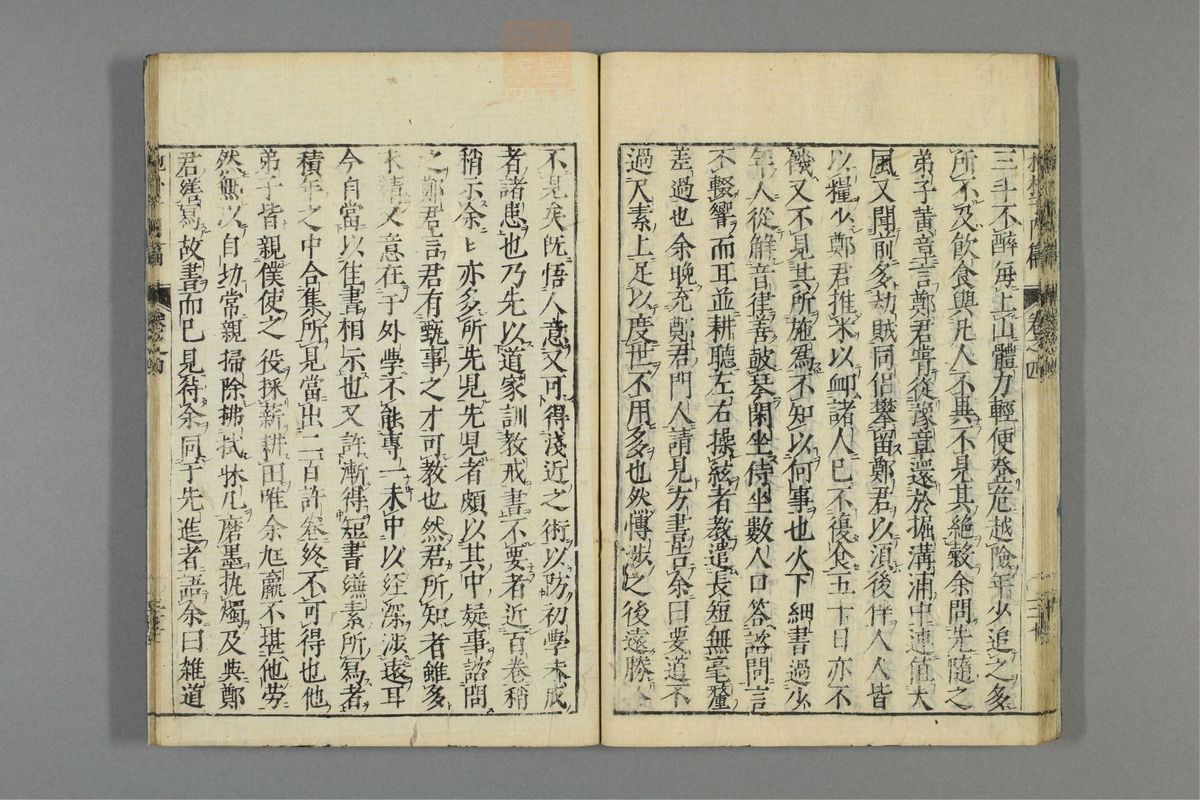 三斗不醉毎上山體力輕便登危越險年少追之多
所不及飲食與凡人不異不見其絶穀余問先隨之
弟子黄章言鄭君甞從豫章還於掘溝浦中連値大
風又聞前多劫賊同侶攀留鄭君以須後伴人人皆
以糧少鄭君推米以卹諸人已不復食五十日亦不
饑又不見其所施爲不知以何事也火下細書過少
年人從解音律善鼓琴閑坐侍坐數人口答諮問言
不輟響而耳並耕聽左右操絃者教遣長短無毫釐
差過也余晩充鄭君門人請見方書吿余曰要道不
過尺素上足以度世不用多也然慱涉之後遠勝
不見矣既悟人意又可得淺近之術以防初學未成
者諸患也乃先以道家訓教戒書不要者近百卷稍
稍示余〻亦多所先見先見者頗以其中疑事諮問
之鄭君言君有甄事之才可教也然君所知者雖多
未精又意在于外學不能專一未中以經深涉遠耳
今自當以佳書相示也又許漸得短書縑素所寫者
積年之中合集所見當出二百許卷終不可得也他
弟子皆親僕使之役採薪耕田唯余尫羸不堪他勞
然無以自効常親掃除拂拭牀几磨墨執燭及典鄭
君繕寫故書而已見待余同于先進者語余曰雜道
卷之四